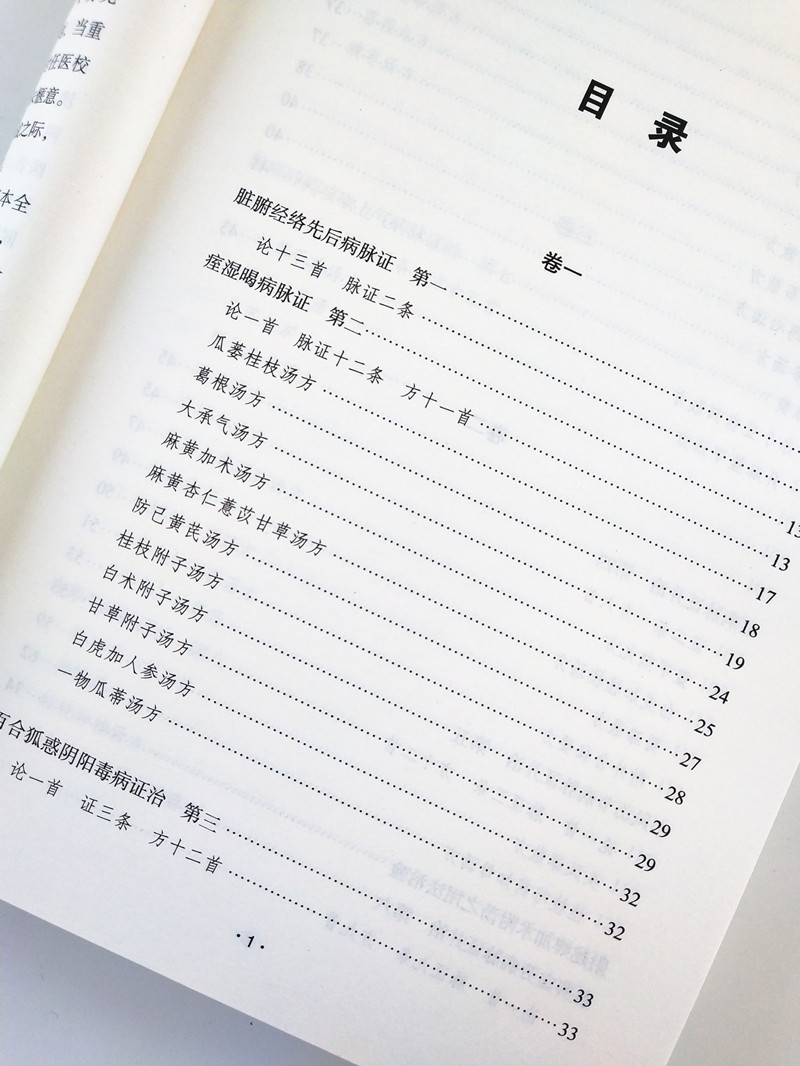 当重
任医校
惬意。
之际,
本全
目 录
卷一
脏腑经络先后病脉证 第一 ……
论十三首 脉证二条 ……
痓湿暍病脉证 第二 …… 13
论一首 脉证十二条 方十一首 …… 13
瓜蒌桂枝汤方 …… 17
葛根汤方 …… 18
大承气汤方 …… 19
麻黄加术汤方 …… 24
麻黄杏仁薏苡甘草汤方 …… 25
防己黄芪汤方 …… 27
桂枝附子汤方 …… 28
白术附子汤方 …… 29
甘草附子汤方 …… 29
白虎加人参汤方 …… 32
一物瓜蒂汤方 …… 32
百合狐惑阴阳毒病证治 第三 …… 33
论一首 证三条 方十二首 …… 33
·1·